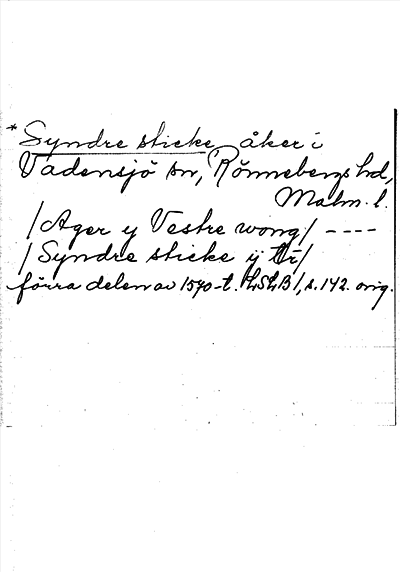 *Syndre sticke, åker i
Vadensjö sn, Rönnebergs hd,
Malm. l.
/Ager y Vestre wong/ ----
/Syndre sticke ij
förra delen av 1570-t. LSLB 1, s. 142. orig.